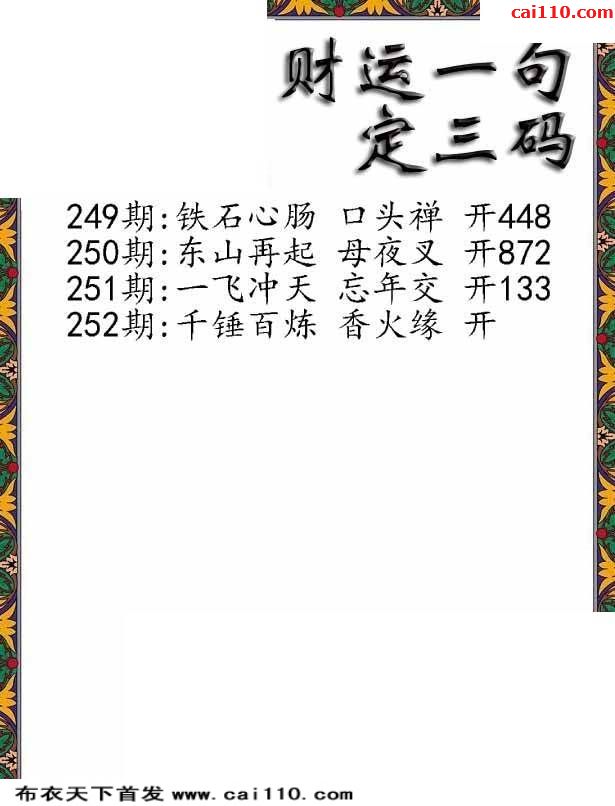 cai110.com
财运一句
定三码
249期:铁石心肠 口头禅 开448
250期:东山再起 母夜叉 开872
251期:一飞冲天 忘年交 开133
252期:千锤百炼 香火缘 开
布衣天下首发 www.cai110.com